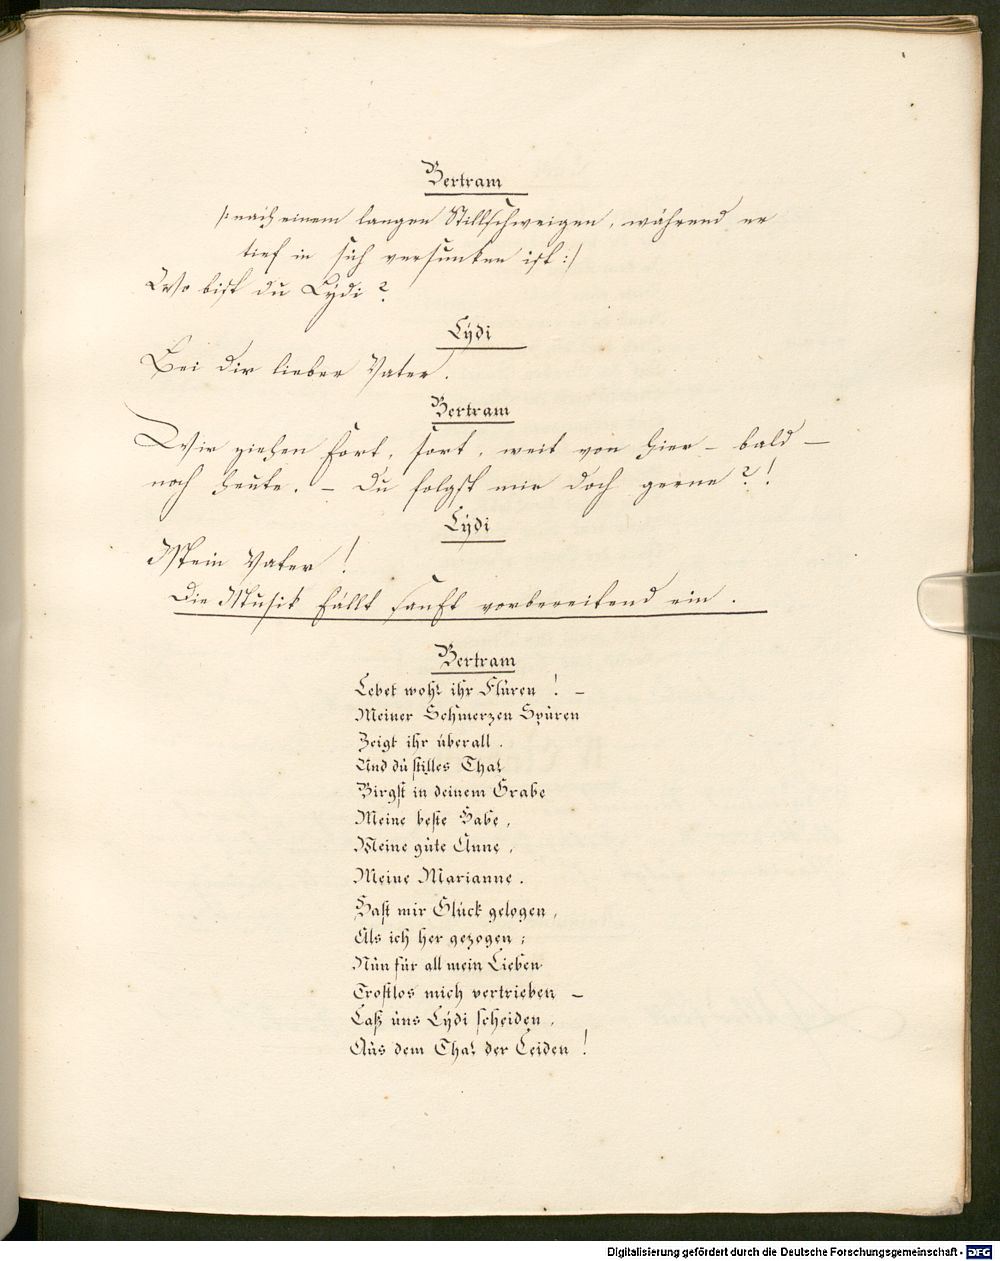 Bertram
/: nach einem langen Stillschweigen, während er
tief in sich versunken ist :/
Wo bist du Lÿdi ?
Lÿdi
Bei dir lieber Vater.
Bertram
Wir ziehen fort, fort, weit von hier – bald –
noch heute. – Du folgst mir doch gerne ? !
Lÿdi
Mein Vater !
Die Musik fällt sanft vorbereitend ein .
Bertram
Lebet wohl ihr Fluren ! –
Meiner Schmerzen Spuren
Zeigt ihr überall .
Und du stilles Thal
Birgst in deinem Grabe
Meine beste Habe ,
Meine gute Anne ,
Meine Marianne .
Hast mir Glück gelogen ,
Als ich her gezogen ;
Nun für all mein Lieben
Trostlos mich vertrieben –
Laß uns Lÿdi scheiden ,
Aus dem Thal der Leiden !
Digitalisierung gefördert durch die Deutsche Forschungsgemeinschaft - DFG